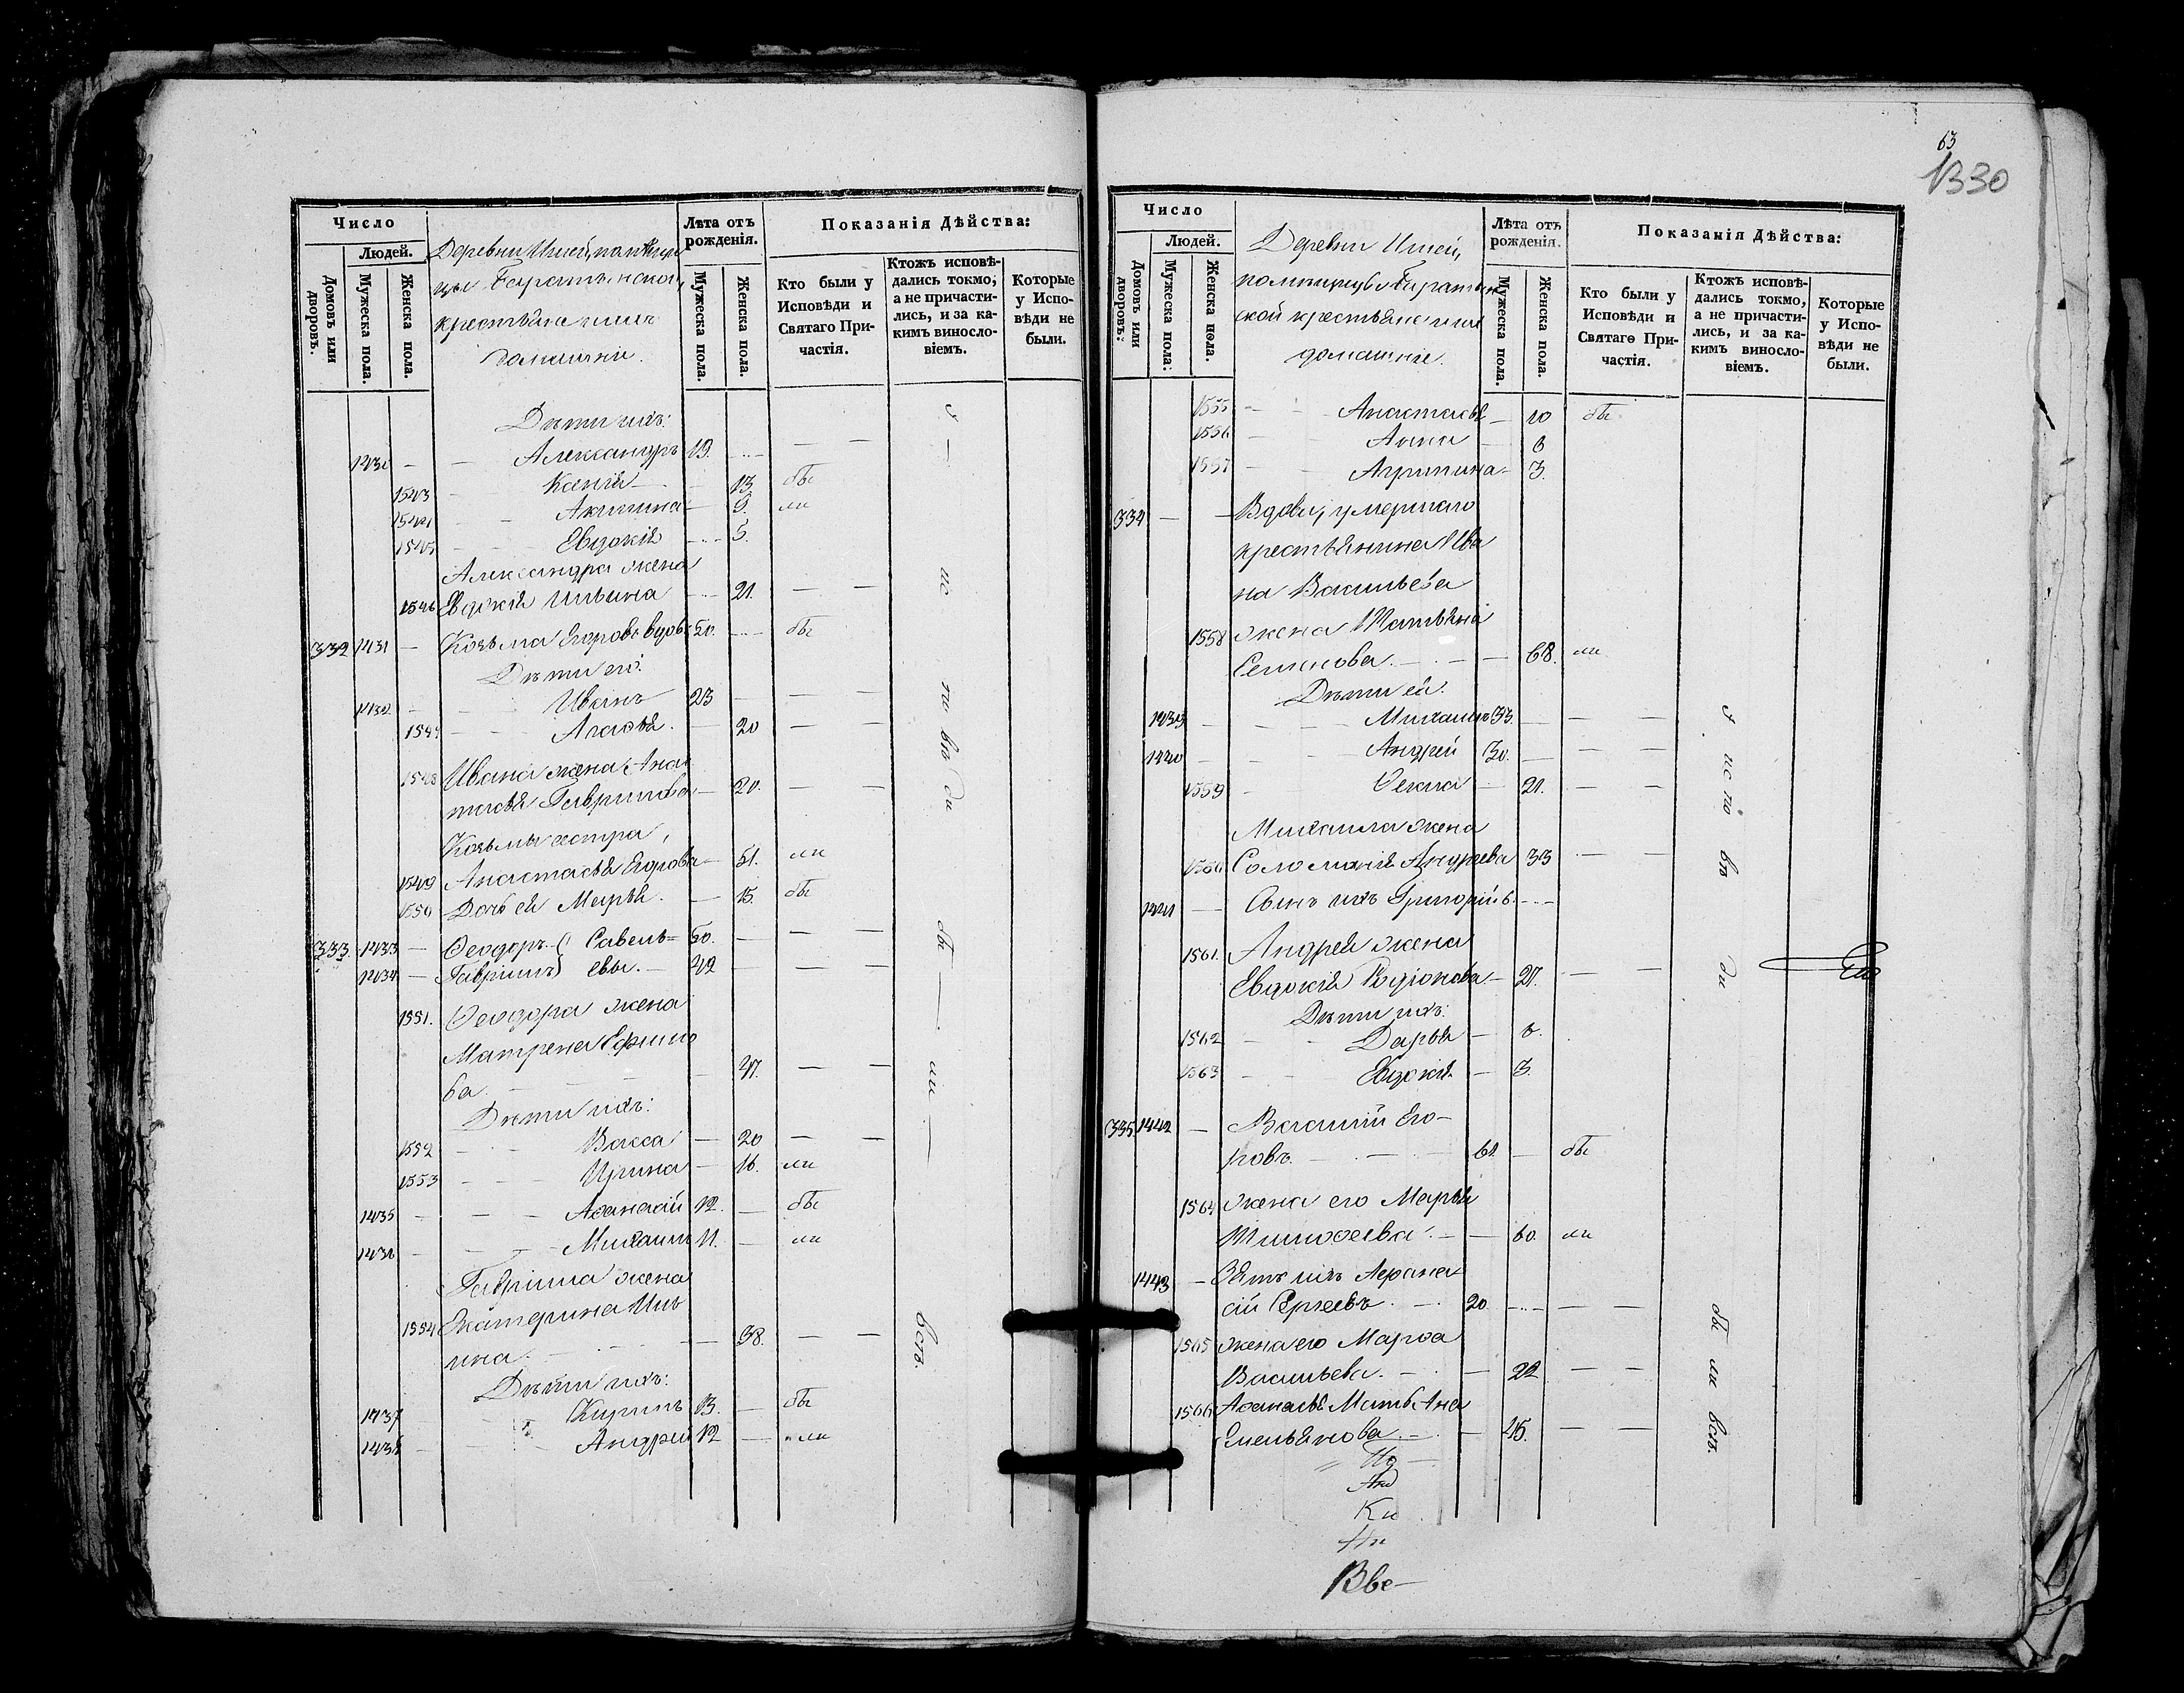 Число
Людей.
Домовъ или дворовъ.
Мужеска пола.
Женска пола.
Деревни Ишей, помѣщи
цы Баратынской,
крестьяне ихъ
домашніе.
Лѣта отъ рожденія.
Мужеска пола.
Женска пола.
Показанія Дѣйства:
Кто были у Исповѣди и Святаго Причастія.
Ктожъ исповѣдались токмо, а не причастились, и за какимъ винословіемъ.
Которые у Исповѣди не были.
Дѣти ихъ:
1430 — — Александръ 19.
1543 Ксенія — 13 бы
1544 Акилина — 9. ли
1545 Евдокія — 5.
Александра жена
1546 Евдокія Ильина — 21.
332 1431 — Козьма Егоровъ вдовъ 50. бы
Дѣти его:
1432 — Иванъ 23
1547 Агафія. — 20
1548 Ивана жена Анас
тасія Гаврилова — 20.
Козьмы сестра,
1549 Анастасія Егорова — 51. ли
1550 Дочь ея Марья. — 15. бы
333 1433 — Ѳеодоръ Савель= 50.
1434 — Гавріилъ евы. — 42
1551. Ѳеодора жена
Матрена Ефимо
ва. — 47.
Дѣти ихъ:
1552 Васса — 20
1553 Ирина — 16. ли
1435 — Аѳанасій 12. бы
1436 — Михаилъ 11. ли
Гавріила жена
1554 Екатерина Иль
ина. — 38.
Дѣти ихъ:
1437 Кирилъ 13. бы
1438 — Андрей 12 ли
у
ис
по
вѣ
ди
бы
ли
всѣ.
63
1330
Число
Людей.
Домовъ или дворовъ.
Мужеска пола.
Женска пола.
Деревни Ишей,
помѣщицы Баратын
ской крестьяне ихъ
домашніе.
Лѣта отъ рожденія.
Мужеска пола.
Женска пола.
Показанія Дѣйства:
Кто были у Исповѣди и Святаго Причастія.
Ктожъ исповѣдались токмо, а не причастились, и за какимъ винословіемъ.
Которые у Исповѣди не были.
1555 — Анастасія — 10 бы
1556 — Анна — 6
1557 — Агрипина — 3.
334 — — Вдова, умершаго
крестьянина Ива
на Васильева
1558 жена Татьяна
Семенова. — 68. ли
Дѣти ея:
1439 — Михаилъ 33.
1440 — Андрей 30.
1559 — Ѳекла — 21.
Михаила жена
1560 Соломанія Андреева 33
1441 — Сынъ ихъ Григорій 6.
1561. Андрея жена
Евдокія Родіонова — 27.
Дѣти ихъ:
1562 Дарья — 6.
1563 Евдокія — 3.
335 1442 — Василій Его-
ровъ. — 61. — бы
1564 Жена его Марья
Тимоѳеева. — 60. ли
1443 — Зять ихъ Аѳана
сій Сергеевъ. — 20.
1565 жена его Марѳа
Васильева. — 22
1566 Аѳанасія Мать Ана
Емельянова. — 45.
у
ис
по
вѣ
ди
бы
ли
всѣ.
Ки
Вве—